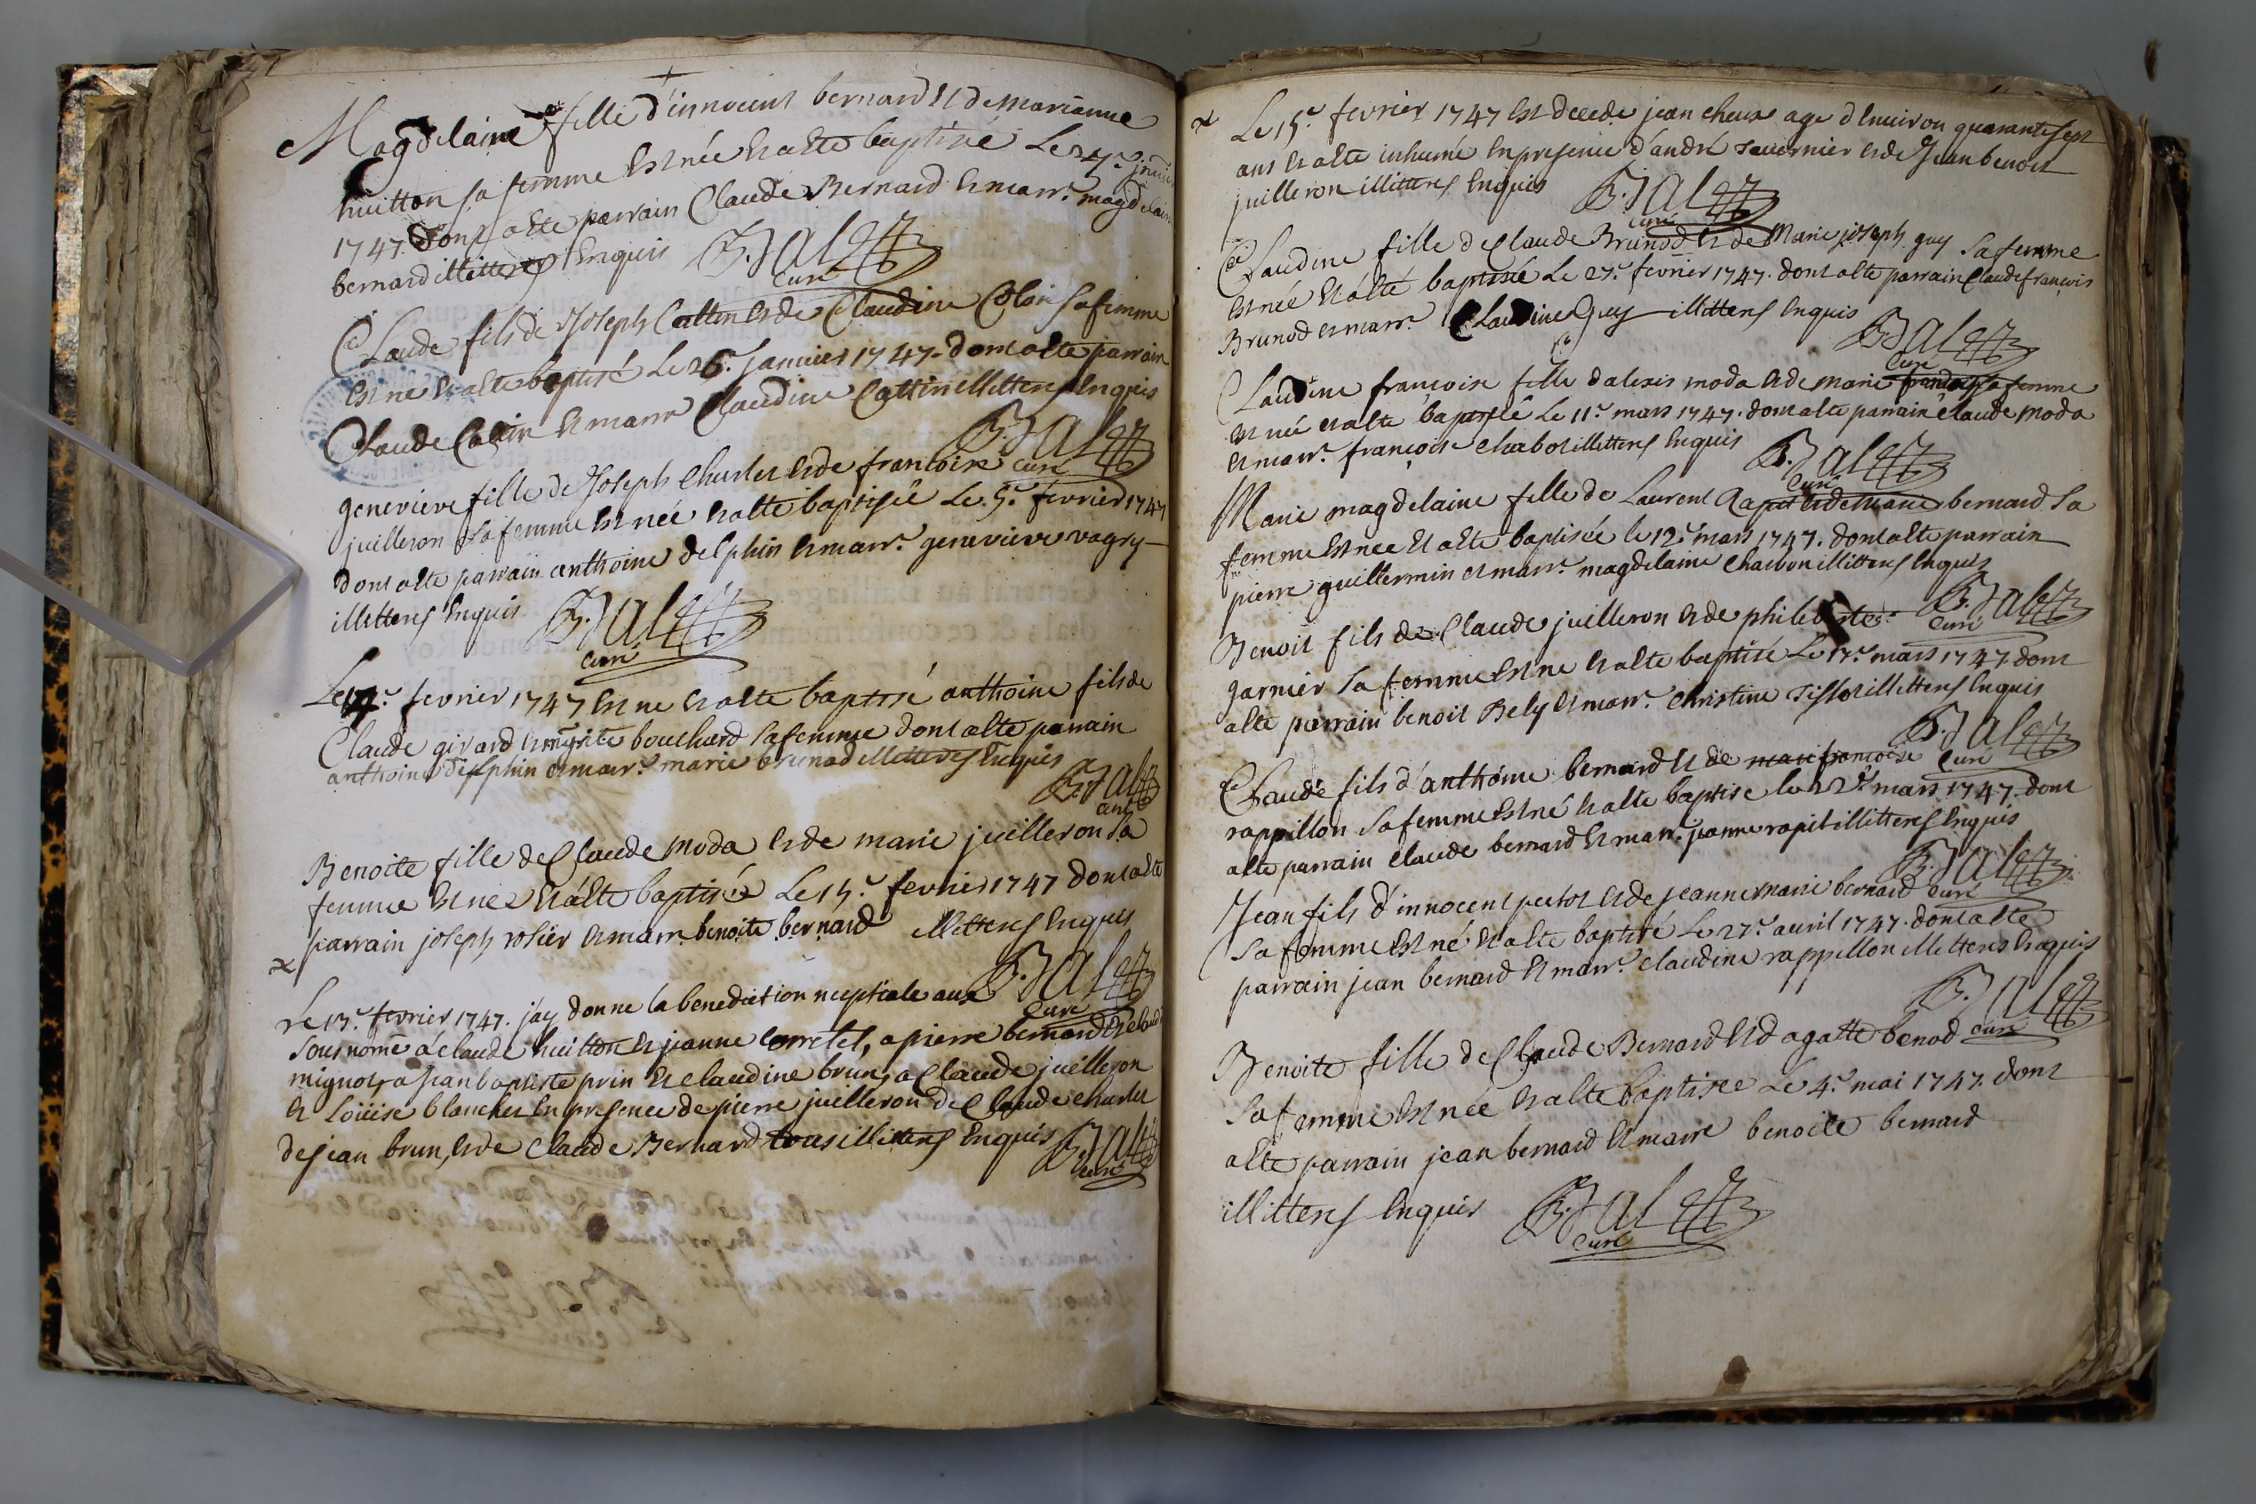 Magdelaine fille d'innocent bernard et de marianne
huitton sa femme est née et a ete baptisée Le 24.e janvier
1747. dont a ete parrain Claude Bernard et marr.e magdelaine
bernard illitteres enquis B. Jalez
curé
Claude fils de Joseph Cattin et de Claudine Colin sa femme
est ne et a ete baptisé Le 26.e janvier 1747. dont a ete parrain
Claude Colin et marr Claudine Cattin illitteres enquis
B. Jalez
curé
genevieve fille de Joseph Charlet et de francoise
juilleron sa femme est née et a ete baptisée Le 5.e fevrier 1747
dont a ete parrain anthoine delphin et marr.e genevieve vagry
illitteres enquis B. Jalez
curé
Le fevrier 1747 est ne et a ete baptisé anthoine fils de
Claude girard et bouchard sa femme dont a ete parrain
anthoine delphin et marr.e marie brunod illitteres enquis
B. Jalez
curé
Benoite fille de Claude moda et de marie juilleron sa
femme est nee et a ete baptisée Le 15.e fevrier 1747 dont a ete
parrain joseph rosier et marr. benoite bernard illitteres enquis
B. Jalez
curé
Le 13.e fevrier 1747. j'ay donne la benediction nuptiale aux
sous nomé a claude huitton et jeanne corretel, a pierre bernard et claud
mignot, a jean baptiste prin et claudine brun, a Claude juilleron
et Loüise blanchet en presence de pierre juilleron de Claude charlet
de jean brun, et de Claude Bernard tous illitteres enquis B. Jalez
curé
Le 15.e fevrier 1747 est decede jean cheux age d'environ quarante sept
ans et a ete inhumé en presence d'andré tavernier et de Jean benoit
juilleron illitteres enquis B. Jalez
curé
Claudine fille de Claude Brunod et de Marie joseph guy sa femme
est née et a été baptisée Le 27.e fevrier 1747. dont a ete parrain Claude françois
Brunod et marr.e Claudine Guy illitteres enquis
B. Jalez
curé
Claudine françoise fille d'alexis moda et de marie sa femme
est née et a ete baptisée Le 11.e mars 1747. dont a ete parrain claude moda
et marr.e françoise chabot illitteres enquis B. Jalez
curé
Marie magdelaine fille de Laurent Rapit et de marie bernard sa
femme est nee et a ete baptisée le 12.e mars 1747. dont a ete parrain
pierre guillermin et marr.e magdelaine charbon illitteres enquis
B. Jalez
curé
Benoit fils de Claude juilleron et de philiberte
garnier sa femme est ne et a ete baptisé Le 17.e mars 1747 dont
a ete parrain benoit Bely et marr.e Christine Tissot illitteres enquis
B. Jalez
curé
Claude fils d'anthoine bernard et de marie francoise
rappillon sa femme est né et a ete baptise le 22.e mars 1747. dont
a ete parrain claude bernard et marr. jeanne rapit illitteres enquis
B. Jalez
curé
Jean fils d'innocent pertot et de jeanne marie bernard
sa femme est né et a ete baptisé Le 27.e avril 1747. dont a ete
parrain jean bernard et marr.e claudine rappillon illitteres enquis
B. Jalez
curé
Benoite fille de Claude Bernard et d'agatte benod
sa femme est née et a ete baptisee Le 4.e mai 1747. dont
a ete parrain jean bernard et marre benoite bernard
illitteres enquis B. Jalez
curé